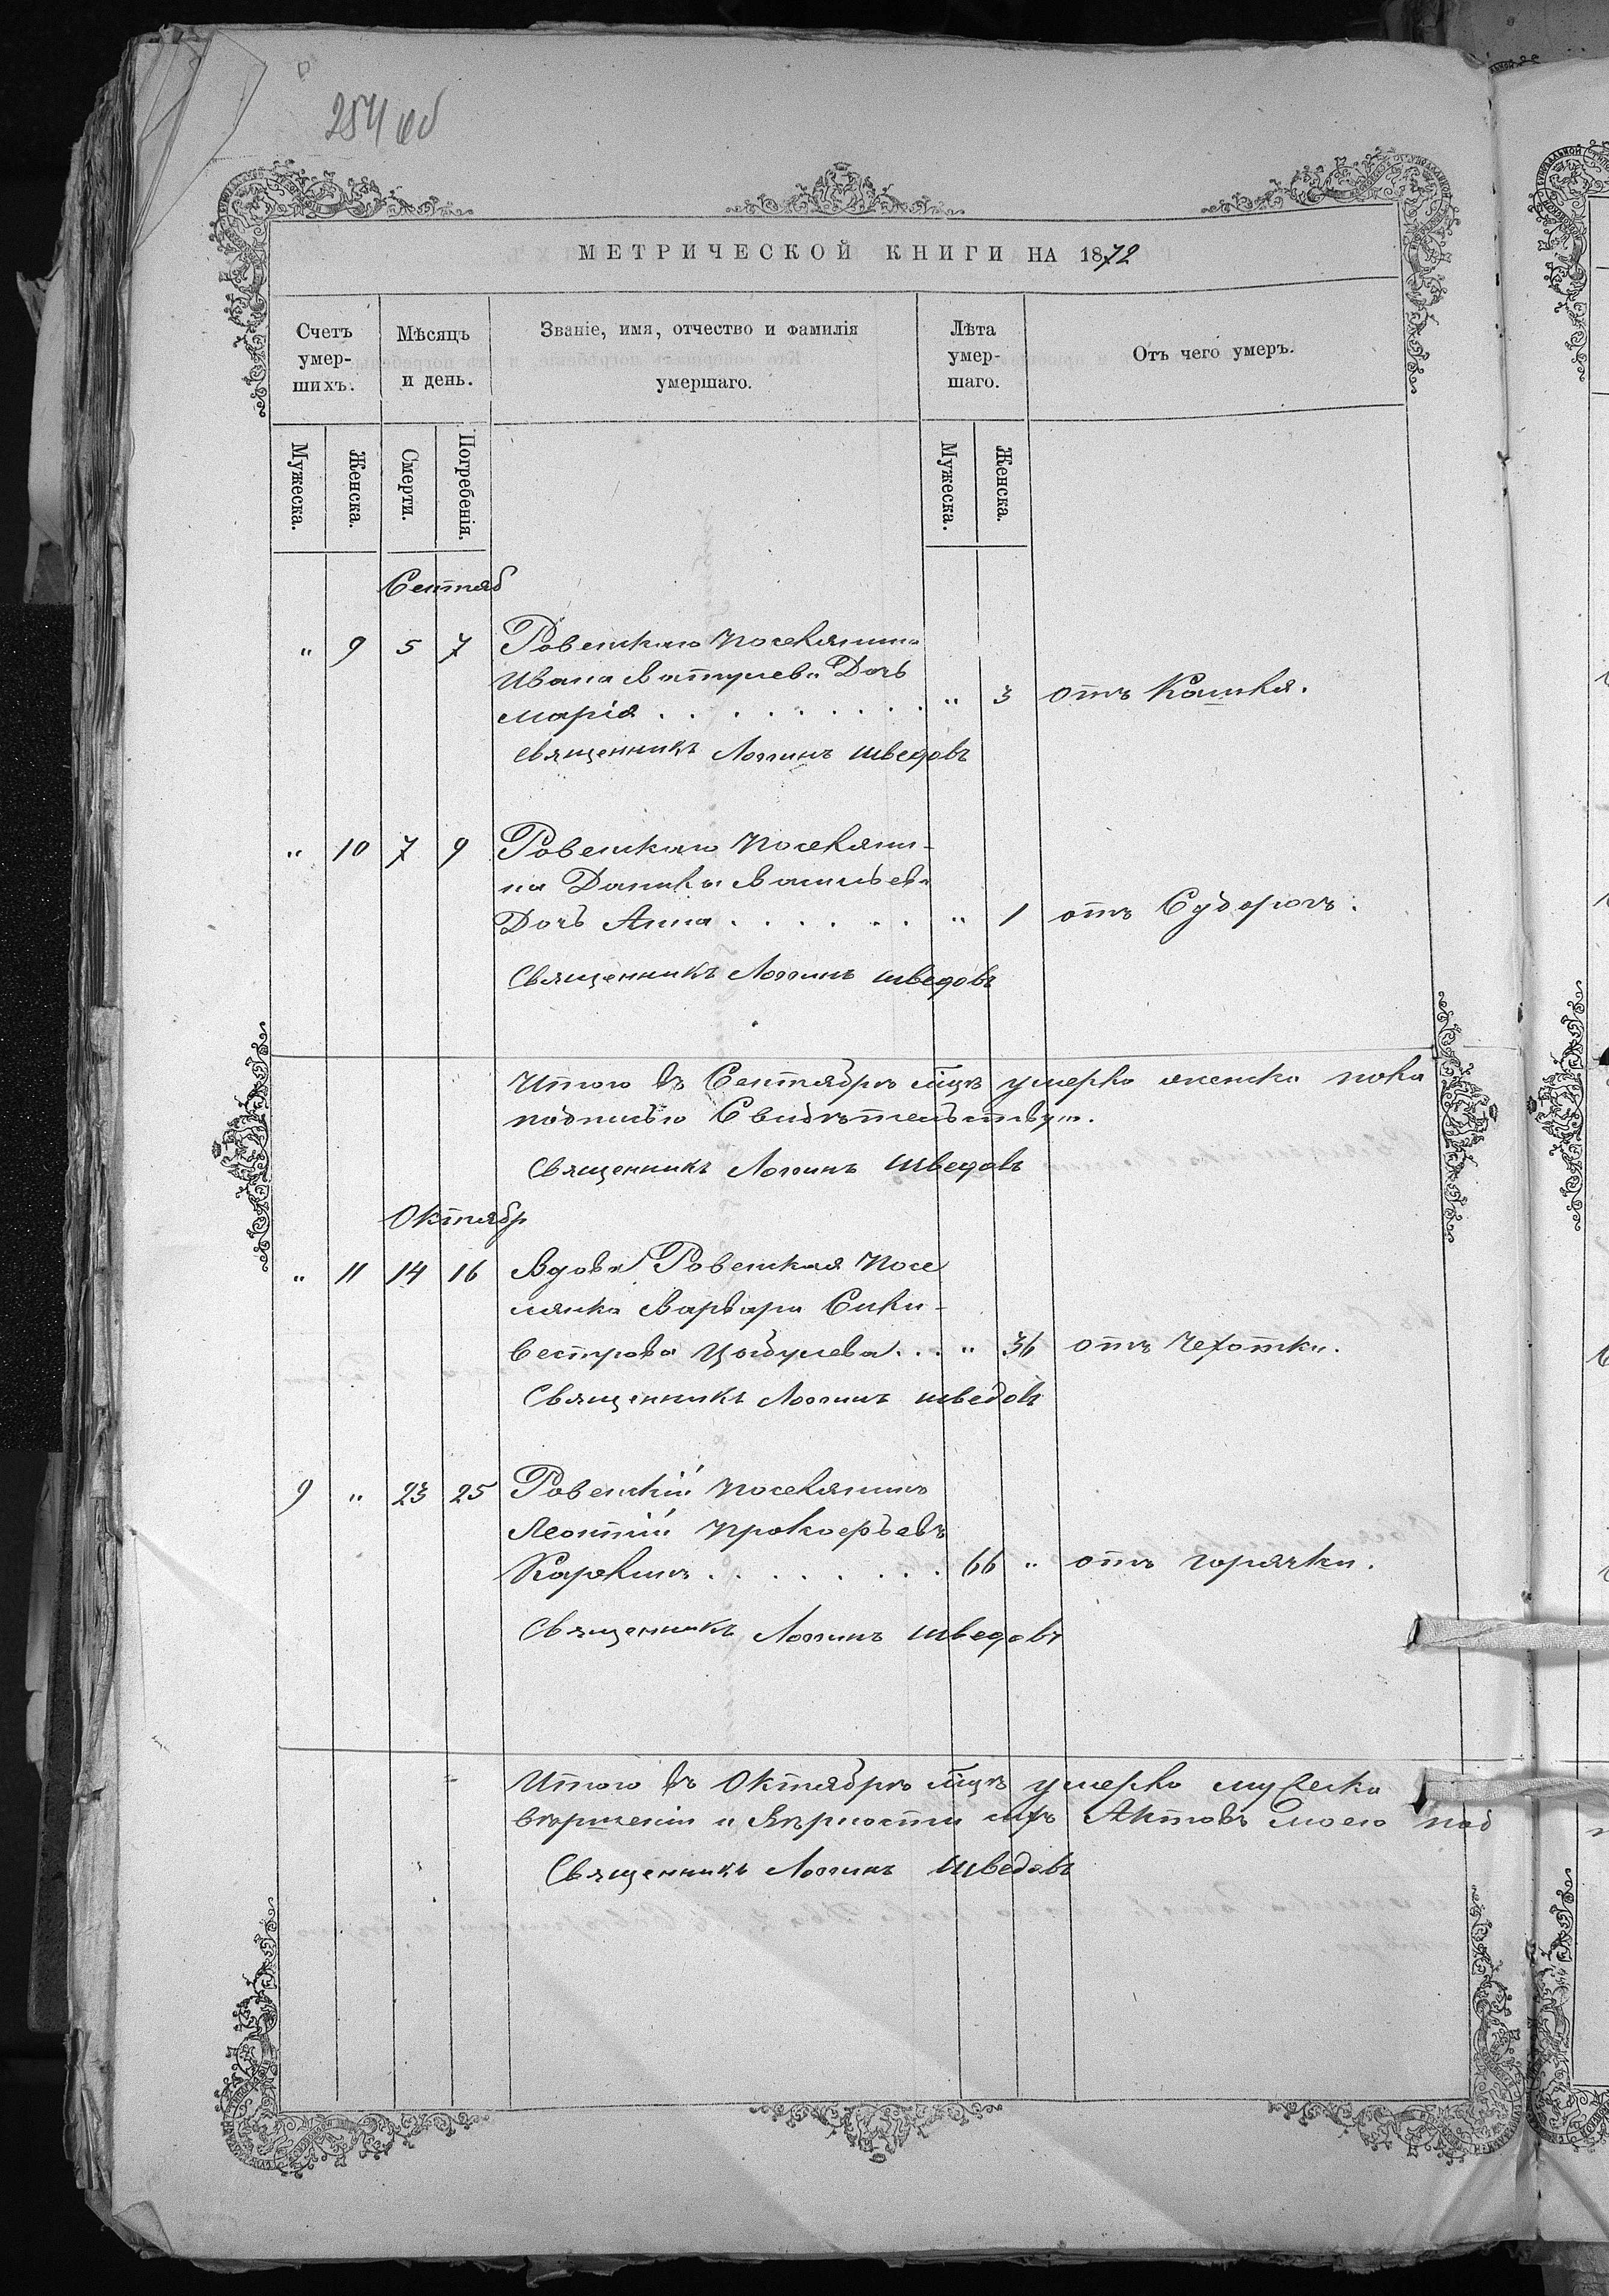 254 об
МЕТРИЧЕСКОЙ КНИГИ НА 1872
Счетъ умер-шихъ.
Мѣсяцъ и день.
Званіе, имя, отчество и фамилія умершаго.
Лѣта умер-шаго.
Отъ чего умеръ.
Мужеска.
Женска.
Смерти.
Погребенія.
Мужеска.
Женска.
Сентяб
" 9 5 7 Ровенскаго поселянина
Ивана Дочь
Марія . . . . . . . . . " 3 отъ Кашля.
священникъ Логинъ Шведовъ
" 10 7 9 Ровенскаго поселяни-
на Данила Васильева
Дочь Анна . . . . . . " 1 отъ Судорогъ.
Священникъ Логинъ Шведовъ
Итого въ Сентябрѣ мцѣ умерло женска пола
подписью Свидѣтельствую.
Священникъ Логинъ Шведовъ
Октябр
" 11 14 16 Вдова Ровенская посе
лянка Варвара Силь-
вестрова Цыбулева . . . " 36 отъ Чехотки.
Священникъ Логинъ Шведовъ
9 " 23 25 Ровенскій поселянинъ
Леонтій Прокофьевъ
Карелинъ . . . . . . . . 66 " отъ горячки.
Священникъ Логинъ Шведовъ
Итого въ Октябрѣ мцѣ умерло мужеска
вершеніи и Вѣрности сихъ Актовъ моею под
Священникъ Логинъ Шведовъ